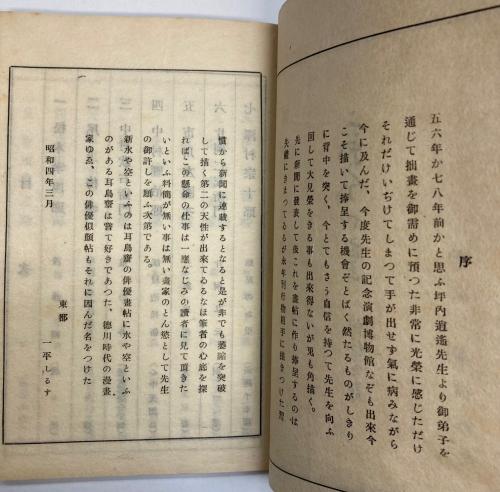 序
五六年か七八年前かと思ふ坪内逍遙先生より御弟子を
通じて拙畫を御需めに預つた非常に光榮に感じただけ
それだけいぢけてしまつて手が出せず氣に病みながら
今に及んだ、今度先生の記念演劇博物館なぞも出來今
こそ描いて捧呈する機會ぞとばく然たるものがしきり
に背中を突く、今とてもさう自信を持つて先生を向ふ
回して大見榮をきる事も出來得ないが兎も角描く。
先に新聞に發表して後これを畫帖に作り捧呈するのは
失禮にきまつてるが永年刊行物相手に描きつけた習
慣から新聞に連載するとなると是が非でも萎縮を突破
して描く第二の天性が出來てゐるなほ筆者の心底を探
ればこの懸命の仕事は一應なじみの讀者に見て頂きた
いといふ料簡が無い事は無い畫家のとん慾として先生
の御許しを願ふ次第である。
新水や空といふのは耳鳥齋の俳優畫帖に水や空といふ
のがある耳鳥齋は嘗て好きであつた、德川時代の漫畫
家ゆゑ、この俳優似顏帖もそれに因んだ名をつけた
昭和四年三月
東都
一平しるす